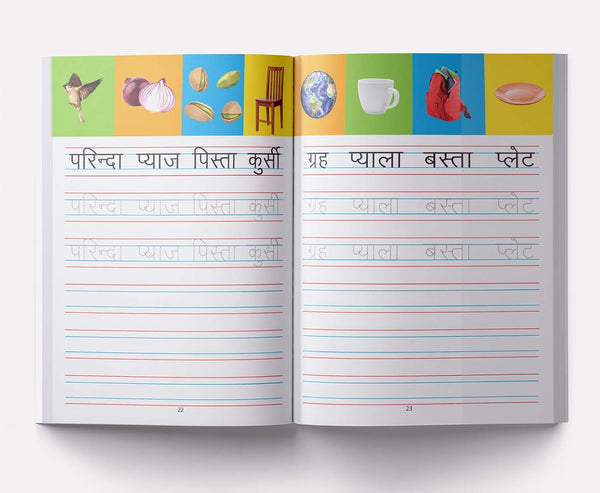 परिन्दा प्याज पिस्ता कुर्सी
परिन्दा प्याज पिस्ता कुर्सी
परिन्दा प्याज पिस्ता कुर्सी
22
ग्रह प्याला बस्ता प्लेट
ग्रह प्याला बस्ता प्लेट
ग्रह प्याला बस्ता प्लेट
23